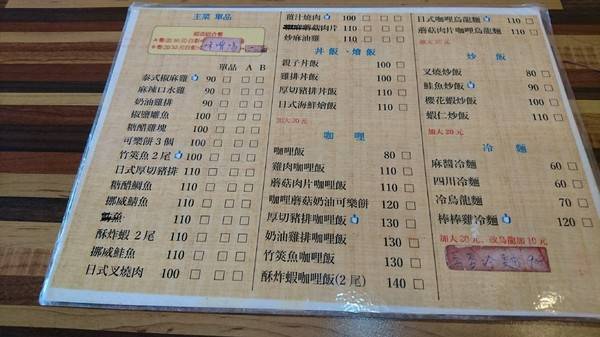 主菜 單品
單品 A B
泰式椒麻雞 90 □ □
麻辣口水雞 90 □ □
奶油雞排 90 □ □
椒鹽魚 100 □ □
糖醋雞塊 100 □ □
可樂餅3個 100 □ □
竹筴魚2尾 100 □ □
日式厚切豬排 110 □ □
糖醋鯛魚 110 □ □
挪威鯖魚 110 □ □
酥炸蝦 2尾 110 □ □
挪威鮭魚 110 □ □
日式叉燒肉 100 □ □
薑汁燒肉 100 □ □
蘑菇肉片 110 □ □
炒麻油雞 110 □ □
丼飯、燴飯
親子丼飯 100 □
雞排丼飯 100 □
厚切豬排丼飯 110 □
日式海鮮燴飯 110 □
加大20元
咖哩
咖哩飯 80 □
雞肉咖哩飯 110 □
蘑菇肉片咖哩飯 110 □
咖哩蘑菇奶油可樂餅 120 □
厚切豬排咖哩飯 130 □
奶油雞排咖哩飯 130 □
竹筴魚咖哩飯 130 □
酥炸蝦咖哩飯(2尾) 140 □
日式咖哩烏龍麵 110 □
蘑菇肉片咖哩烏龍麵 110 □
加大10元
炒飯
叉燒炒飯 80 □
鮭魚炒飯 90 □
櫻花蝦炒飯 100 □
蝦仁炒飯 110 □
加大20元
冷麵
麻醬冷麵 60 □
四川冷麵 60 □
冷烏龍麵 70 □
棒棒雞冷麵 120 □
加大10元、改烏龍加10元